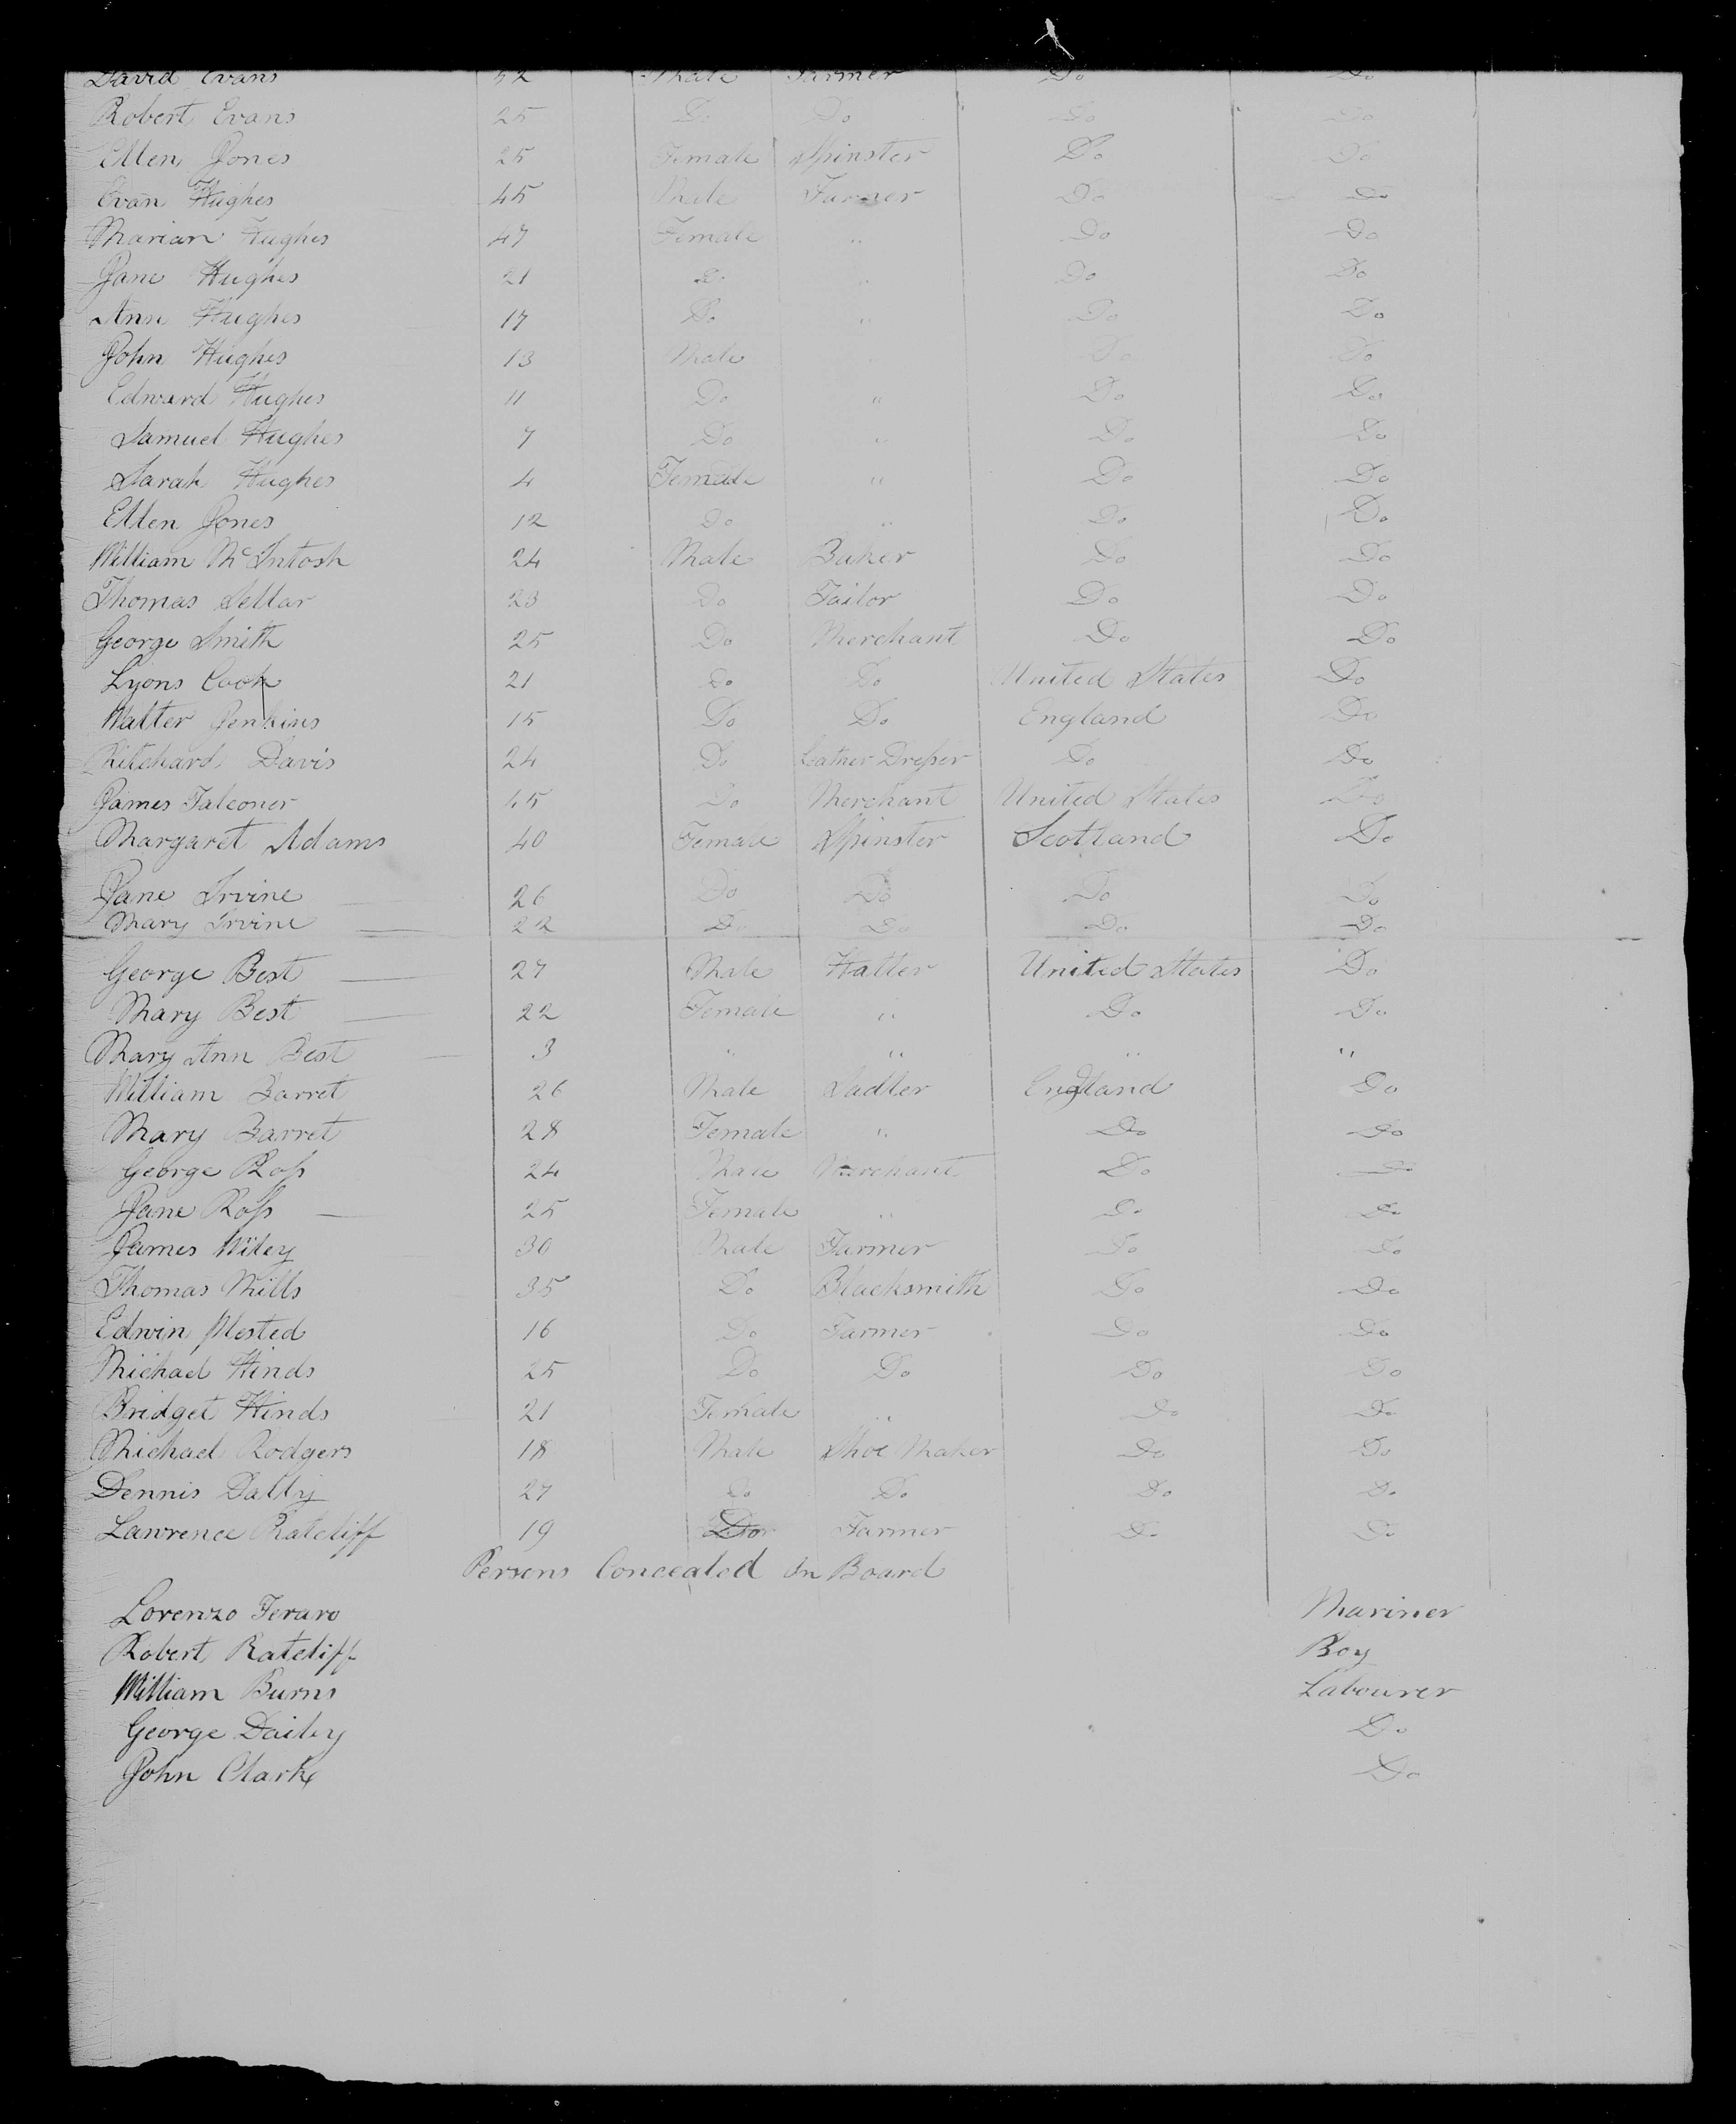 David Evans 32 Male Farmer Do Do
Robert Evans 25 Do Do Do Do
Ellen Jones 25 Female Spinster Do Do
Evan Hughes 45 Male Farmer Do Do
Marian Hughes 47 Female " Do Do
Jane Hughes 21 Do " Do Do
Ann Hughes 17 Do " Do Do
John Hughes 13 Male " Do Do
Edward Hughes 11 Do " Do Do
Samuel Hughes 7 Do " Do Do
Sarah Hughes 4 Female " Do Do
Ellen Jones 12 Do " Do Do
William McIntosh 24 Male Baker Do Do
Thomas Sellar 23 Do Tailor Do Do
George Smith 25 Do Merchant Do Do
Lyons Cook 21 Do Do United States Do
Walter Jenkins 15 Do Do England Do
Ritchard Davis 24 Do Leather Dresser Do Do
James Falconer 45 Do Merchant United States Do
Margaret Adams 40 Female Spinster Scotland Do
Jane Irvine 26 Do Do Do Do
Mary Irvine 22 Do Do Do Do
George Best 27 Male Hatter United States Do
Mary Best 22 Female " Do Do
Mary Ann Best 3 " " " "
William Barret 26 Male Sadler England Do
Mary Barret 28 Female " Do Do
George Ross 24 Male Merchant Do Do
Jane Ross 25 Female " Do Do
James Wiley 30 Male Farmer Do Do
Thomas Mills 35 Do Blacksmith Do Do
Edwin Plested 16 Do Farmer Do Do
Michael Hinds 25 Do Do Do Do
Bridget Hinds 21 Female " Do Do
Michael Rodgers 18 Male Shoe Maker Do Do
Dennis Dally 27 Do Do Do Do
Lawrence Ratcliff 19 Do Farmer Do Do
Persons Concealed On Board
Lorenzo Feraro Mariner
Robert Ratcliff Boy
William Burns Labourer
George Dailey Do
John Clark Do